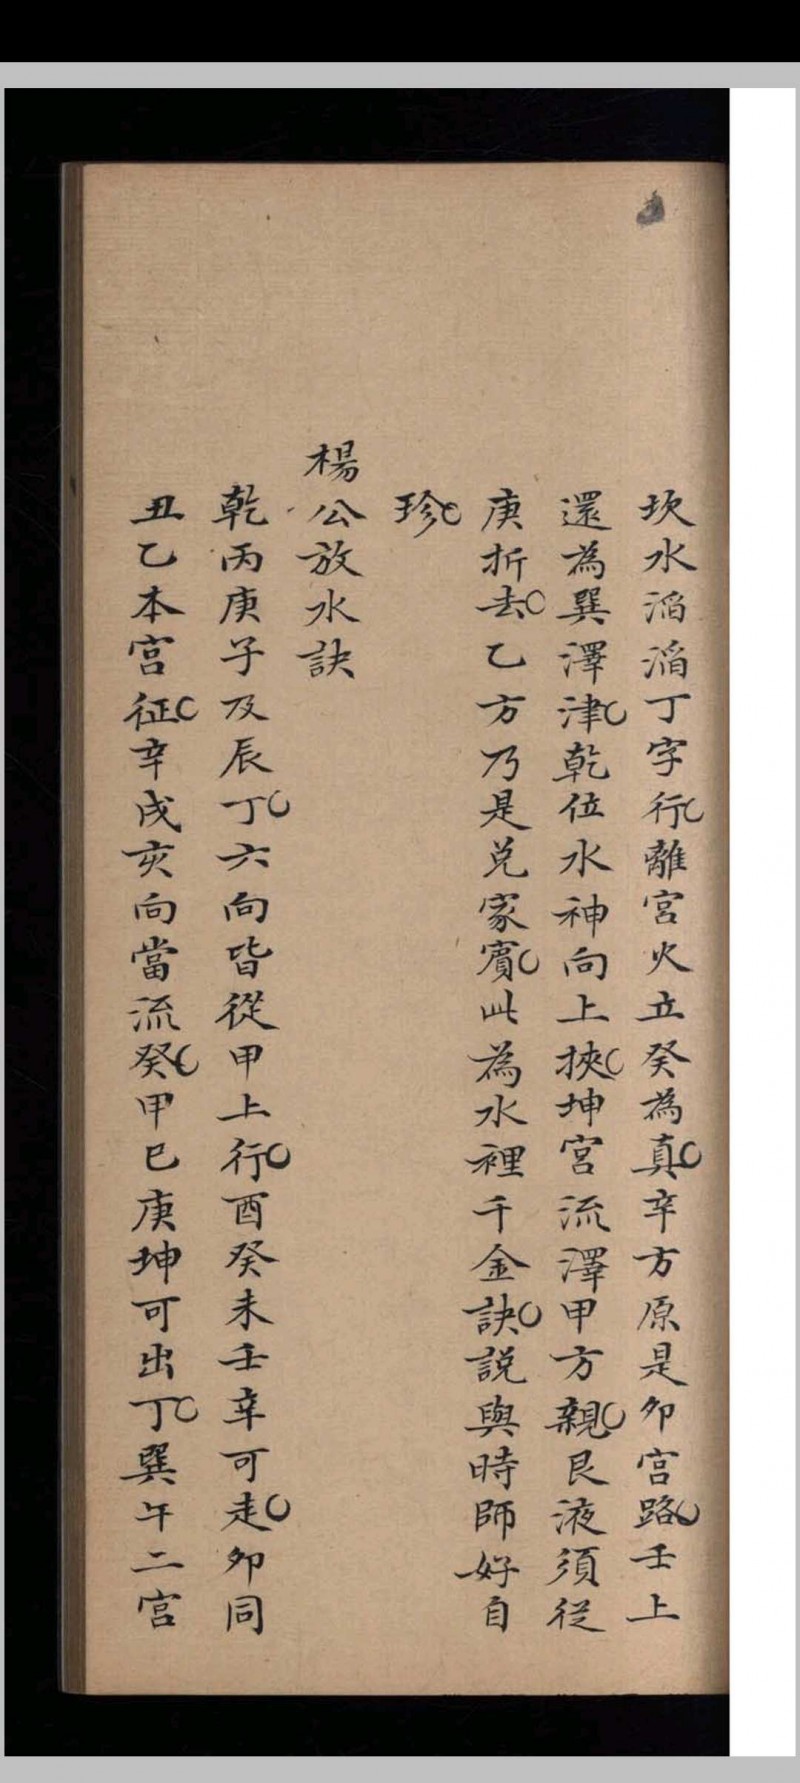 坎水滔滔丁字行離宮火立癸為真辛方原是卯宮路壬上
還為巽澤津乾位水神向上挾坤宮流澤甲方親艮液須從
庚折去乙方乃是兌家賓此為水裡千金訣説與時師好自
珍
楊公放水訣
乾丙庚子及辰丁六向皆從甲上行酉癸未壬辛可走卯同
丑乙本宮征辛戌亥向當流癸甲巳庚坤可出丁巽午二宮